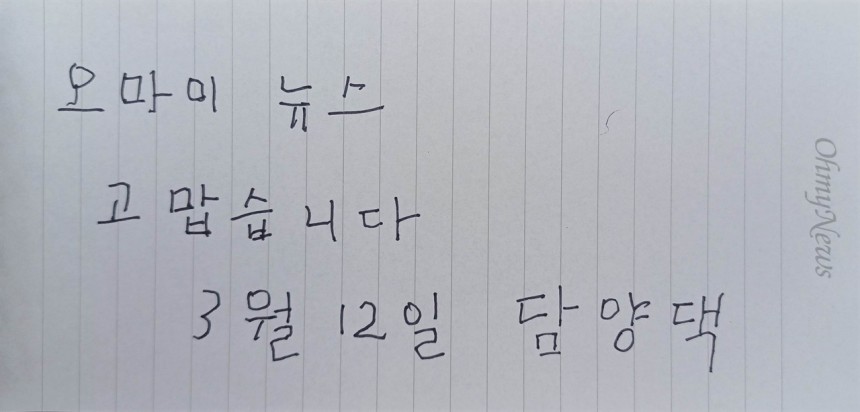 오마이 뉴스
고맙습니다
3월 12일 담양댁
OhmyNews